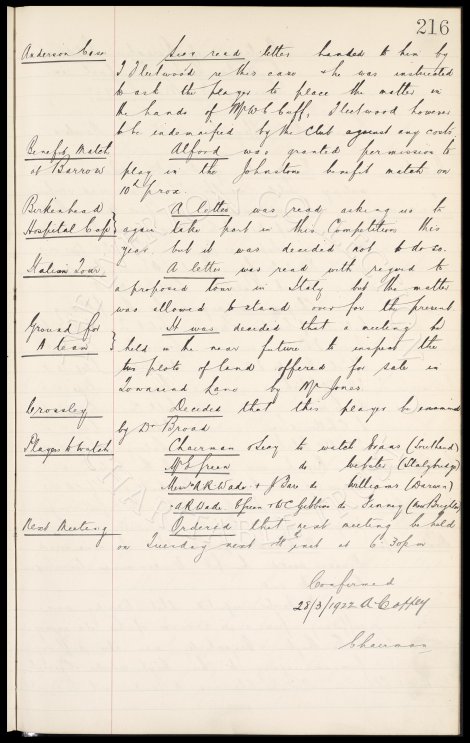 216
Anderson Case Secy read letter handed to him by
T Fleetwood re this case & he was instructed
to ask the player to place the matter in
the hands of Mr W C Cuff, Fleetwood however
to be indemnified by the Club against any costs
Benefit Match Alford was granted permission to
at Barrow play in the Johnston benefit match on
10th prox.
Birkenhead A letter was read asking us to
Hospital Cup again take part in this Competition this
year but it was decided not to do so.
Italian Tour A letter was read with regard to
a proposed tour in Italy but the matter
was allowed to stand over for the present
Ground for It was decided that a meeting be
A team held in the near future to inspect the
two plots of land offered for sale in
Townsend Lane by Mr Jones
Crossley Decided that this player be examined
by Dr Broad
Players to Watch Chairman & Secy to watch Evans (Southend)
Mr E Green do Webster (Stalybridge)
Messrs A R Wade & J Bare do Williams (Darwen)
A R Wade E Green & W C Gibbins do Finney (New Brighton)
Next Meeting Ordered that next meeting be held
on Tuesday next inst at 6.30pm
Confirmed
28/3/1922 A Coffey
Chairman